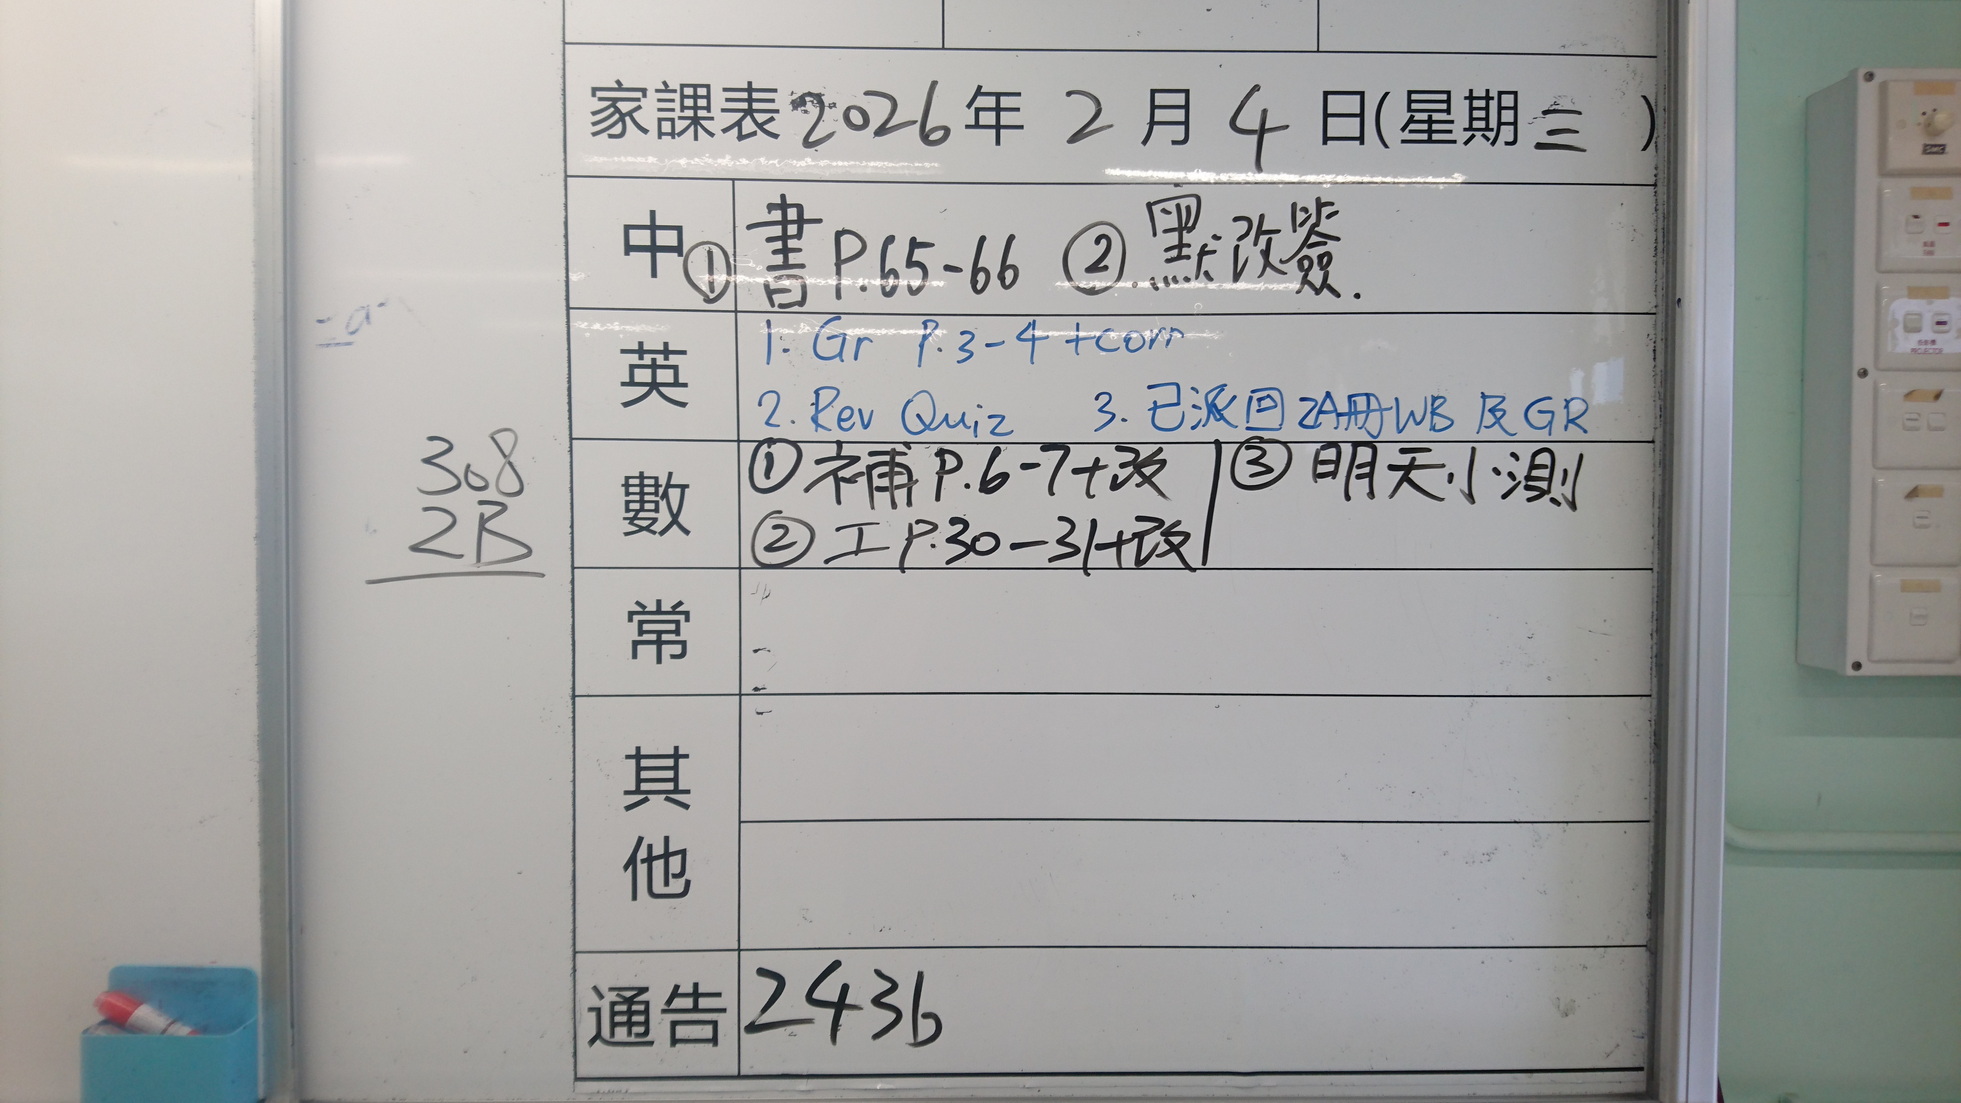 家課表2026年 2 月 4 日(星期三 )
中 ①書P.65-66 ②默改簽.
英 1. Gr P.3-4 +corr
2. Rev Quiz 3. 已派回2A冊WB 及GR
數 ①補P.6-7+改 ③明天小測
②工P.30-31+改
308
2B
常
其他
通告 2436